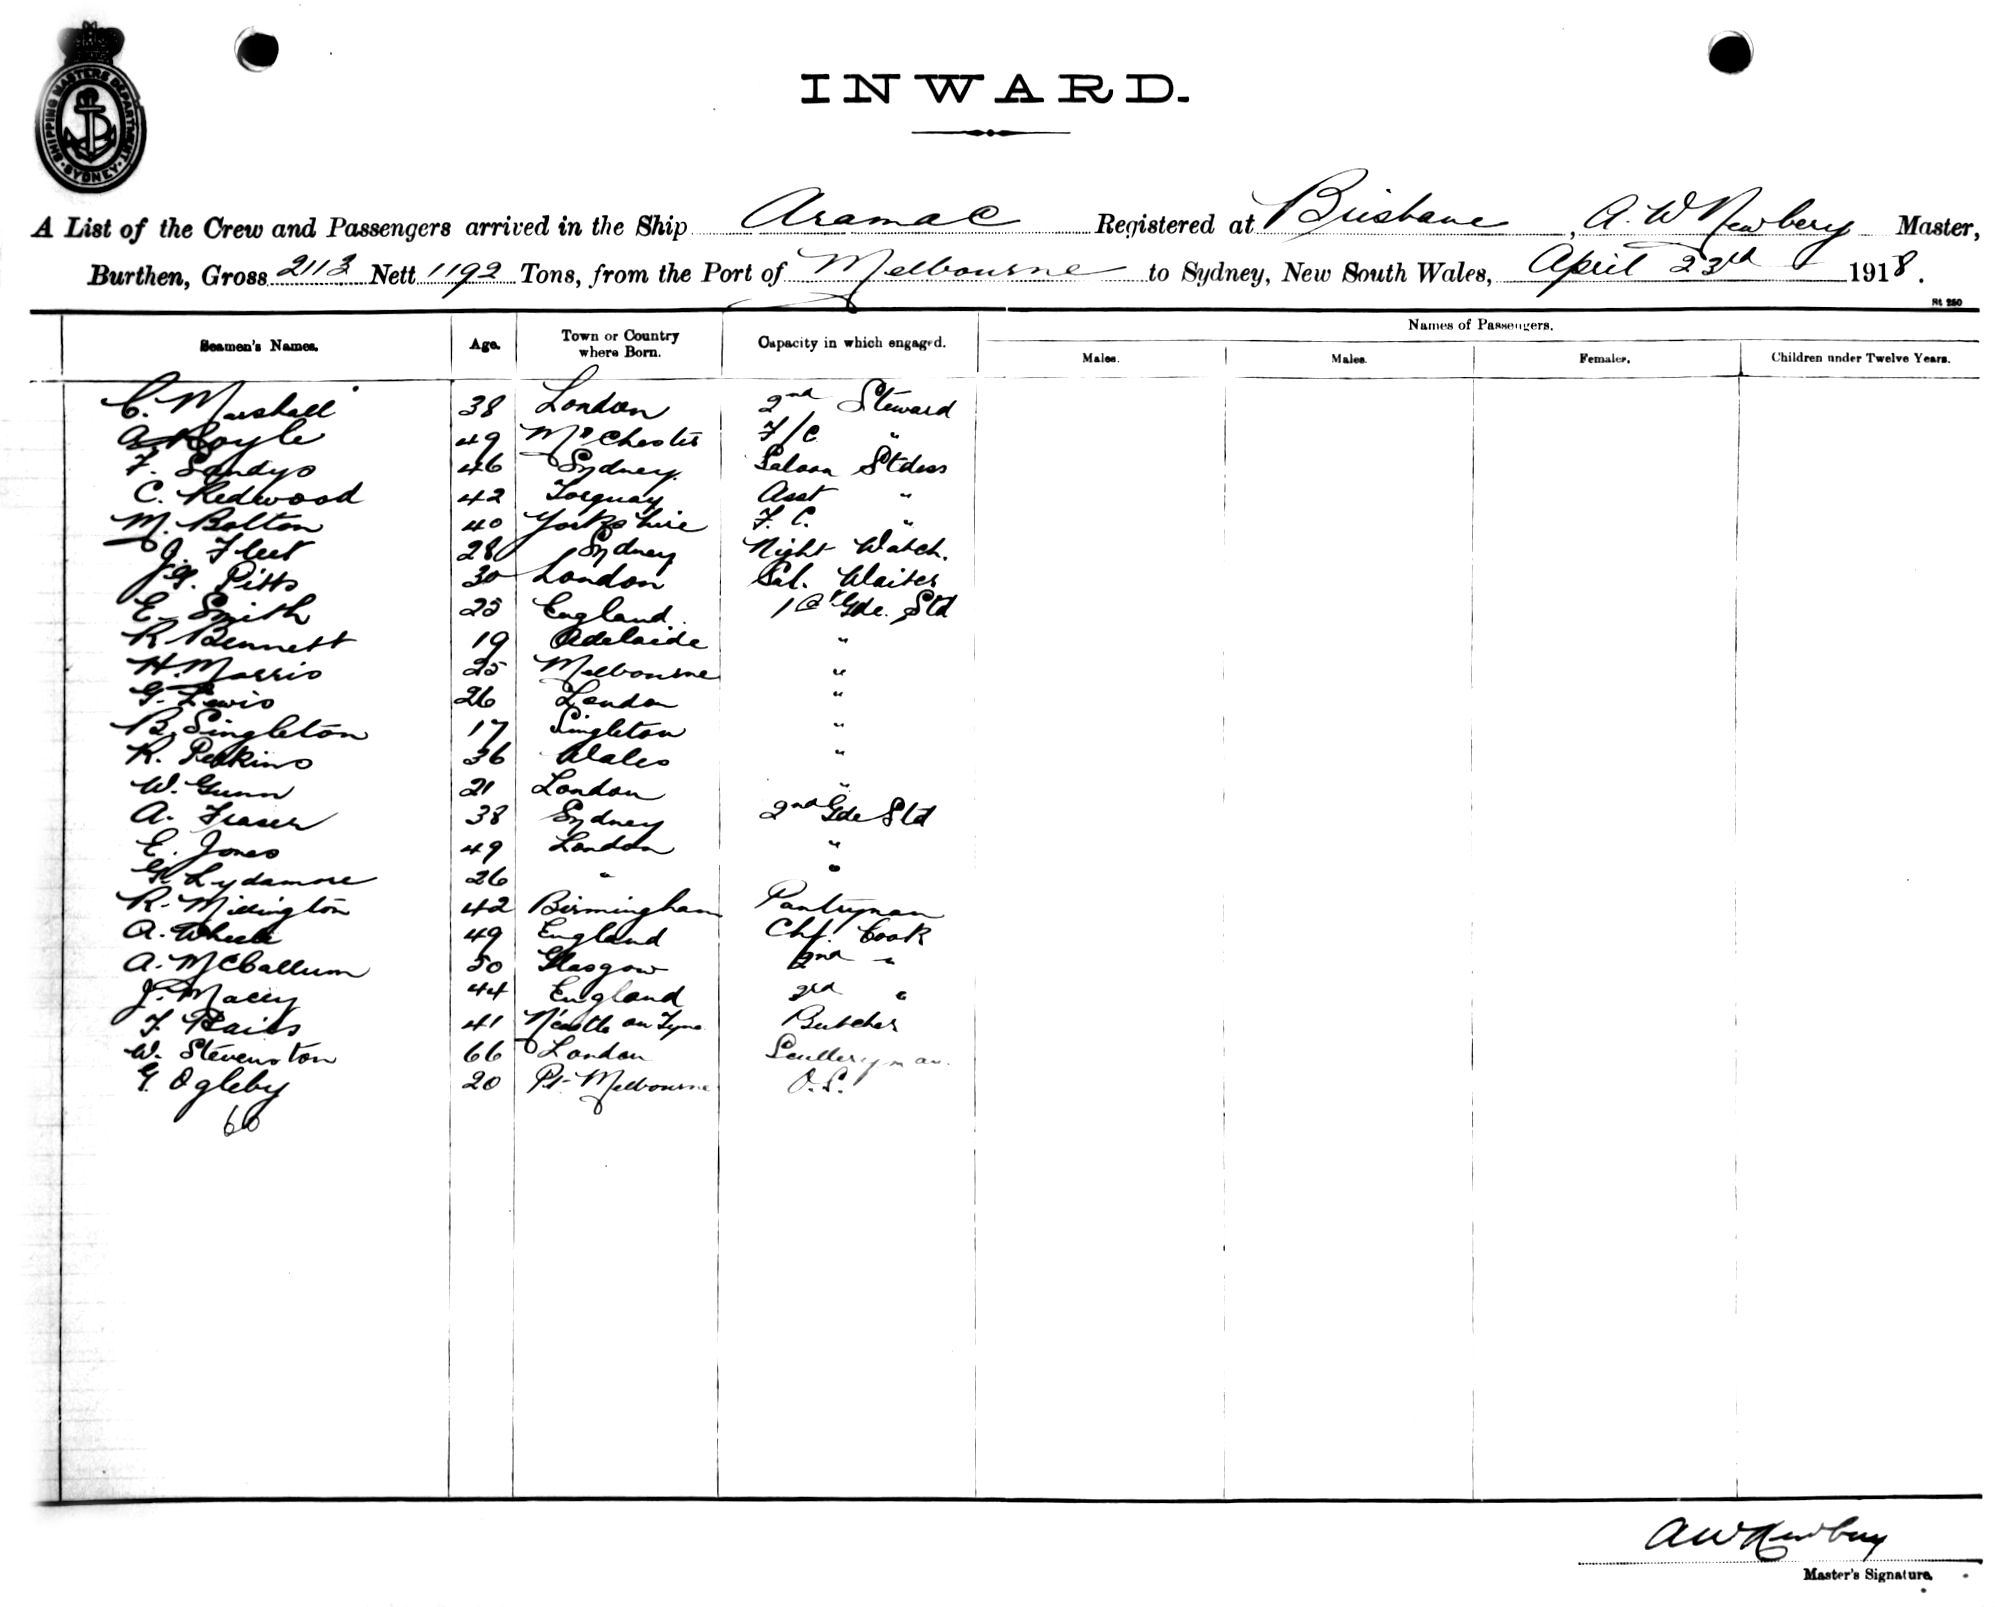 SHIPPING MASTERS DEPARTMENT SYDNEY
INWARD.
A List of the Crew and Passengers arrived in the Ship Aramac Registered at Brisbane, A. W Newbery Master,
Burthen, Gross 2113 Nett 1192 Tons, from the Port of Melbourne to Sydney, New South Wales, April 23rd 1918.
St 250
Seamen's Names. Age. Town or Country where Born. Capacity in which engaged. Names of Passengers.
Males. Males. Females. Children under Twelve Years.
C. Marshall 38 London 2nd Steward
A Royle 49 M'chester F/C "
F. Sandys 46 Sydney Saloon Stdess
C. Redwood 42 Torquay Asst "
M. Bolton 40 Yorkshire F. C. "
J. Fleet 28 Sydney Night Watch.
J.G. Pitts 30 London Sal. Waiter
E. Smith 25 England 1st Gde. Std
R. Bennett 19 Adelaide "
H. Morris 25 Melbourne "
G. Lewis 26 London "
B. Singleton 17 Singleton "
R. Perkins 36 Wales "
W. Gunn 21 London "
A. Fraser 38 Sydney 2nd Gde Std
E. Jones 49 London "
G. Lydamore 26 " "
R. Millington 42 Birmingham Pantryman
A. 49 England Chf. Cook
A. McCallum 50 Glasgow 2nd "
J. Macey 44 England 3rd "
F. 41 N'castle on Tyne Butcher
W. Stevenston 66 London Sculleryman.
G. Ogleby 20 Pt Melbourne O.S.
66
AW Newbery
Master's Signature.